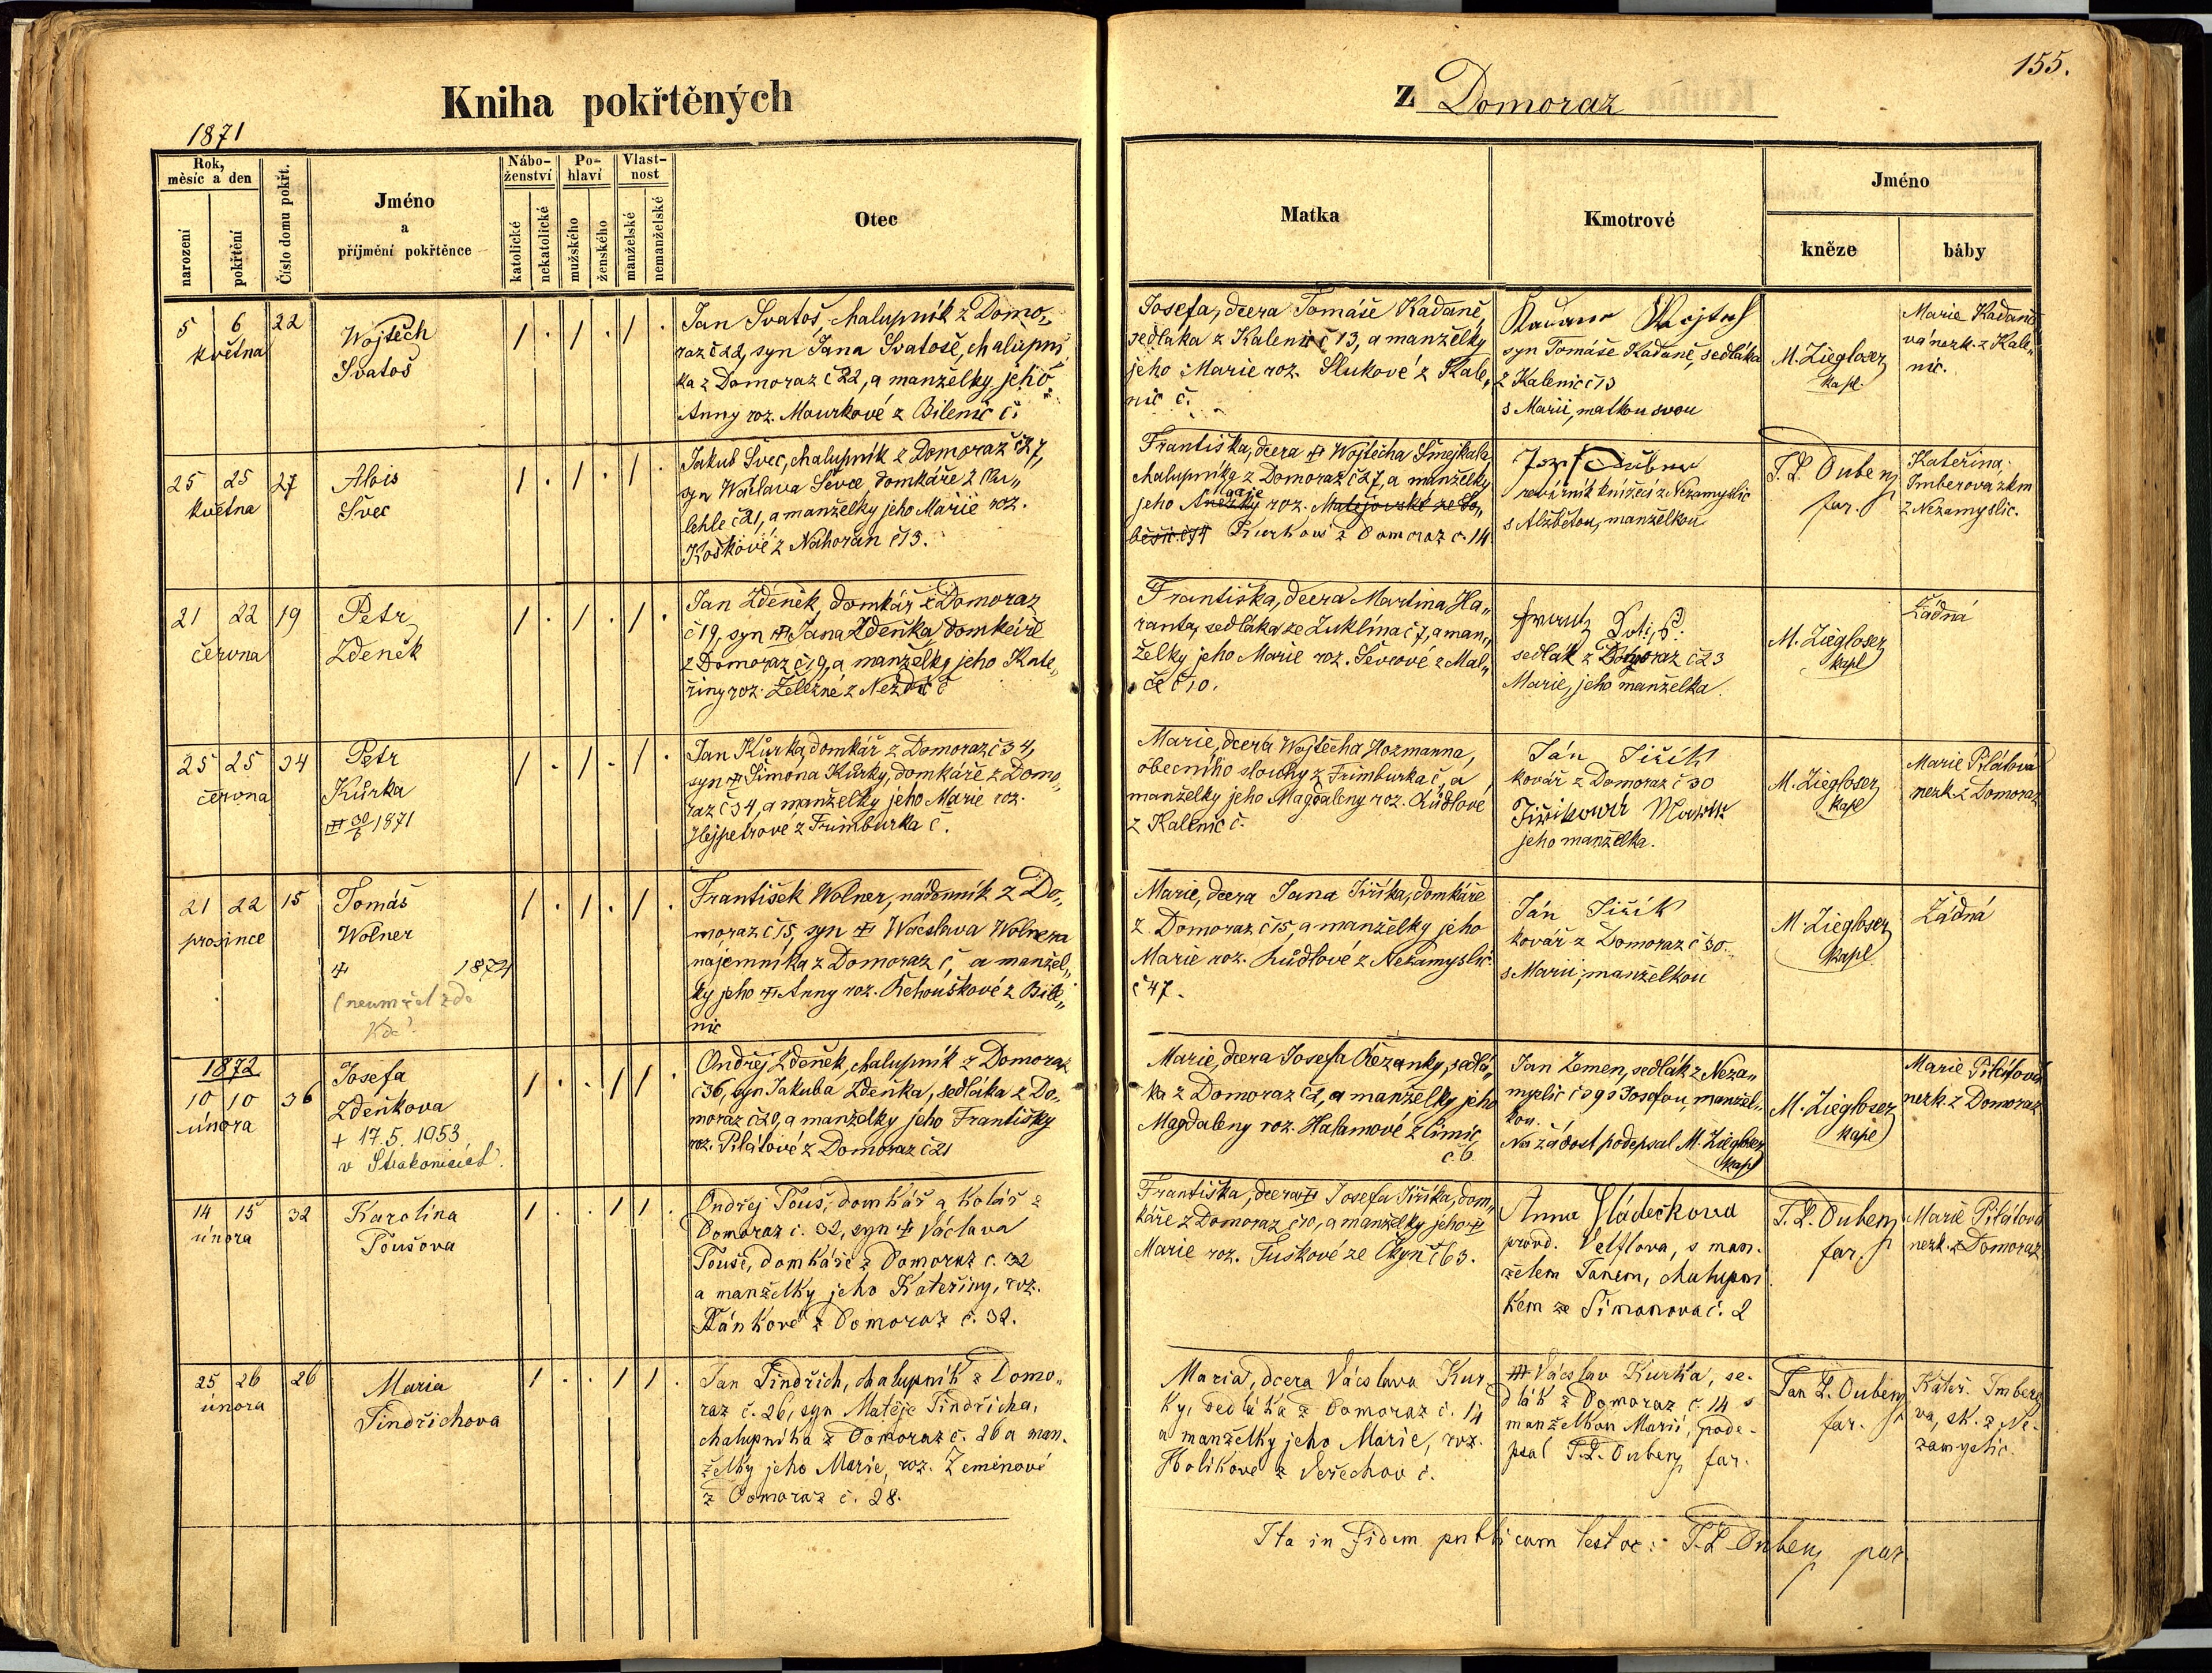 155.
Kniha pokřtěných
z Domoraz
1871
Rok, měsíc a den
narození
pokřtění
Číslo domu pokřt.
Jméno
a
příjmění pokřtěnce
Nábo-
ženství
katolické
nekatolické
Po-
hlaví
mužského
ženského
Vlast-
nost
manželské
nemanželské
Otec
Matka
Kmotrové
Jméno
kněze
báby
5 6 22
května
Wojtěch
Svatoš
1 . 1 . 1 .
Jan Svatoš, chalupník z Domo„
raz č 22, syn Jana Svatoše, chalupní
ka z Domoraz č 22, a manželky jeho
Anny roz. Mourkové z Bilenic č.
Josefa, dcera Tomáše Kadaně,
sedláka z Kalenic č 13, a manželky
jeho Marie roz. Slukové z Kale„
nic č.
syn Tomáše Kadaně, sedláka
z Kalenic č 13
s Marií, matkou svou
M. Ziegloser
kapl.
Marie Kadaně
vá nezk. z Kale„
nic.
25 25 27
května
Alois
Švec
1 . 1 . 1 .
Jakub Švec, chalupník z Domoraz č 27,
syn Wáclava Ševce, domkáře z
lehle č 21, a manželky jeho Marie roz.
Koškové z Nahořan č 13.
Františka, dcera Wojtěcha Smejkala
chalupníka z Domoraz č 27, a manželky
jeho Anežky Marie roz. Matějovské ze So„
běšic č 4 Kurkové z Domoraz č. 14
revírník knížecí z Nezamyslic
s Alžbětou, manželkou
T. L. Dubený
far.
Kateřina
Imberova zkm
z Nezamyslic.
21 22 19
června
Petr
Zdeněk
1 . 1 . 1 .
Jan Zdeněk, domkář z Domoraz
č 19, syn Jana Zdeňka, domkáře
z Domoraz č 19, a manželky jeho Kate„
řiny roz. Železné z Nezdic č
Františka, dcera Martina Ha„
ranta, sedláka ze Zuklína č 7, a man„
želky jeho Marie roz. Ševcové z Mal„
če č 10.
sedlák z Domoraz č 23
Marie, jeho manželka.
M. Ziegloser
kapl
Žádná
25 25 34
června
Petr
Kůrka
30/6 1871
1 . 1 . 1 .
Jan Kůrka, domkář z Domoraz č 34,
syn Šimona Kůrky, domkáře z Domo„
raz č 34, a manželky jeho Marie roz.
Hejpetrové z Frimburka č.
Marie, dcera Wojtěcha Hozmanna,
obecního slouhy z Frimburka č, a
manželky jeho Magdaleny roz. Lůdlové
z Kalenic č.
Ján Jiřík
kovář z Domoraz č 30
Jiříková
jeho manželka.
M. Ziegloser
kapl
Marie Pilátová
nezk. z Domoraz
21 22 15
prosince
Tomáš
Wolner
1874
(neumřel zde
Kde?
1 . 1 . 1 .
František Wolner, nádenník z Do„
moraz č 15, syn Wácslava Wolnera
nájemníka z Domoraz č, a manžel„
ky jeho Anny roz. Řehouškové z Bile„
nic
Marie, dcera Jana Jiříka, domkáře
z Domoraz č 15, a manželky jeho
Marie roz. Lůdlové z Nezamyslic
č 47.
Ján Jiřík
kovář z Domoraz č 30.
s Marií, manželkou
M. Ziegloser
kapl
Žádná
1872
10 10 36
února
Josefa
Zdeňkova
+ 17. 5. 1953
v Strakonicích.
1 . . 1 1 .
Ondřej Zdeněk, chalupník z Domoraz
č 36, syn Jakuba Zdeňka, sedláka z Do„
moraz č 29, a manželky jeho Františky
roz. Pilátové z Domoraz č 21
Marie, dcera Josefa Řezanky, sedlá„
ka z Domoraz č 2, a manželky jeho
Magdaleny roz. Halamové z Čimic
č. 6.
Jan Zemen, sedlák z Neza„
myslic č 39 s Josefou, manžel„
kou.
Na žádost podepsal M. Ziegloser
kapl
M. Ziegloser
kapl
Marie Pilátová
nezk. z Domoraz
14 15 32
února
Karolína
Poušova
1 . . 1 1 .
Ondřej Pouš, domkář a kolář z
Domoraz č. 32, syn Václava
Pouše, domkáře z Domoraz č. 32
a manželky jeho Kateřiny, roz.
Vánkové z Domoraz č. 32.
Františka, dcera Josefa Jiříka, dom„
káře z Domoraz č 10, a manželky jeho
Marie roz. Tuškové ze Čkyň č 63.
Anna Sládečkova
provd. Velflova, s man.
želem Janem, chalupní
kem ze Šimonova č. 2
T. L. Dubený
far.
Marie Pilátová
nezk. z Domoraz
25 26 26
února
Maria
Jindřichova
1 . . 1 1 .
Jan Jindřich, chalupník z Domo„
raz č. 26, syn Matěje Jindřicha,
chalupníka z Domoraz č. 26 a man.
želky jeho Marie, roz. Zemenové
z Domoraz č. 28.
Maria, dcera Václava Kur.
ky, sedláka z Domoraz č. 14
a manželky jeho Marie, roz.
Holíkové z Veřechov č.
Václav Kurka, se-
dlák z Domoraz č. 14 s
manželkou Marií, pode-
psal T. L. Dubený far.
Jan L. Dubený
far.
Kateř. Imbero
va, zk. z Ne-
zamyslic.
Ita in fidem publicam testor: T. L. Dubený par.